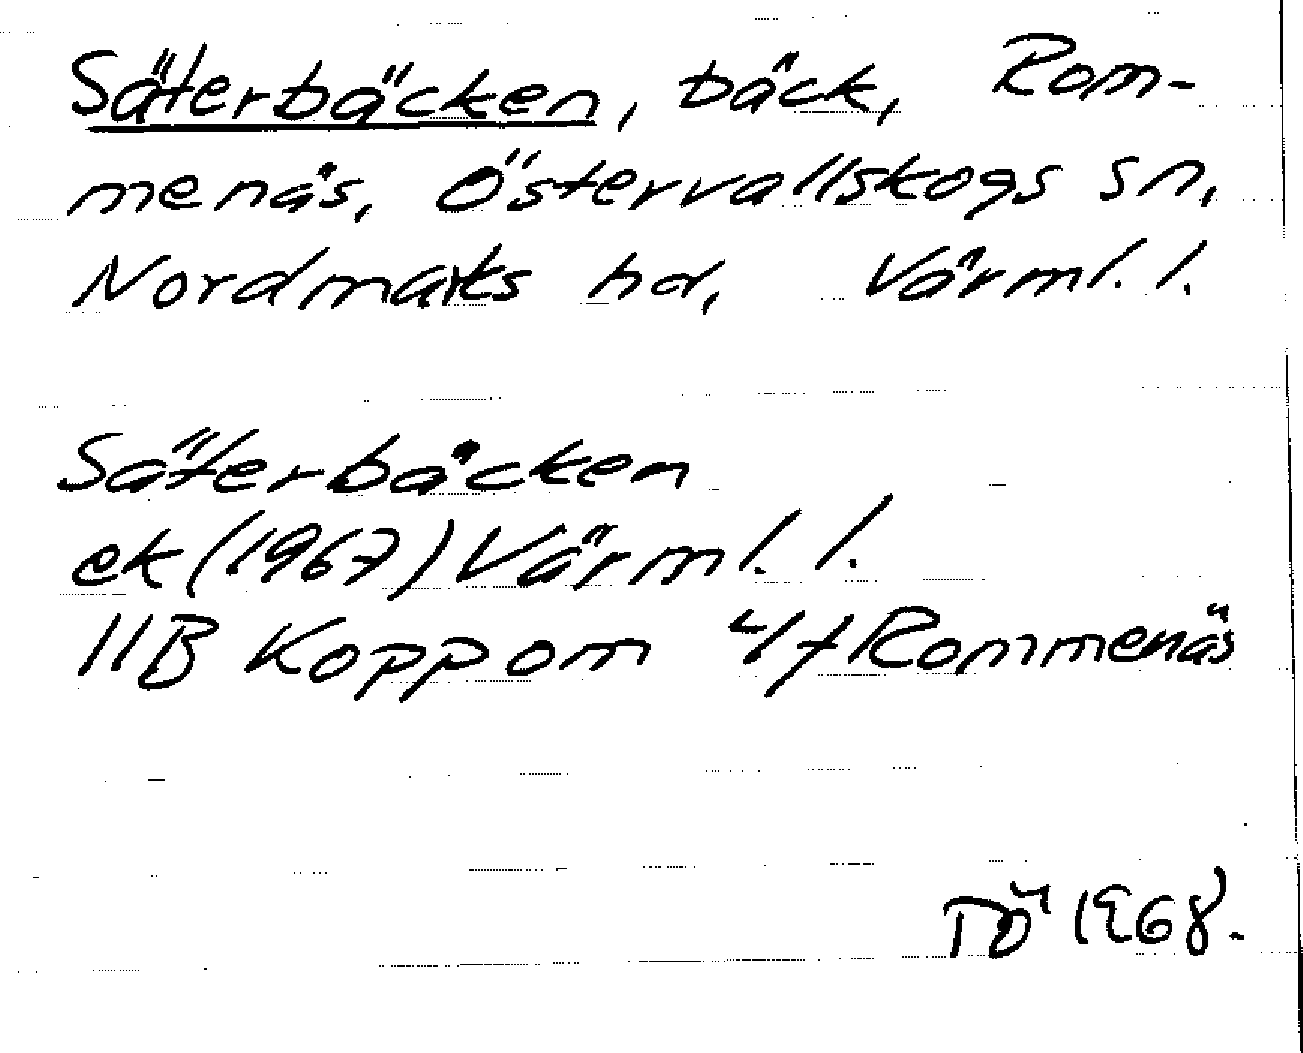 Säterbäcken, bäck, Rom-
menäs, Östervallskogs sn,
Nordmarks hd, Värml. l.
Säterbäcken
ek (1967) Värml. l.
11B Koppom 4f Rommenäs
TÖ 1968.